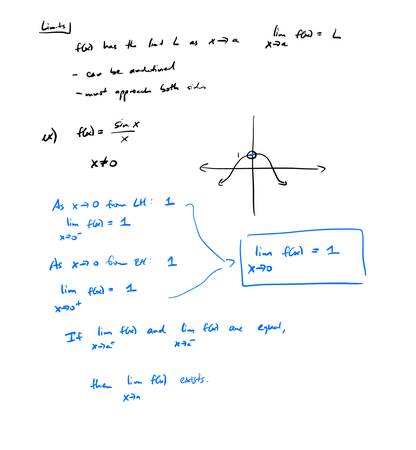 Limits
f(x) has the limit L as x→a lim x→a f(x) = L
- can be undefined
- must approach both sides
ex) f(x) = sin x / x
x ≠ 0
1
As x→0 from LH: 1
lim x→0⁻ f(x) = 1
As x→0 from RH: 1
lim x→0⁺ f(x) = 1
lim x→0 f(x) = 1
If lim x→a⁻ f(x) and lim x→a⁻ f(x) are equal,
then lim x→a f(x) exists.